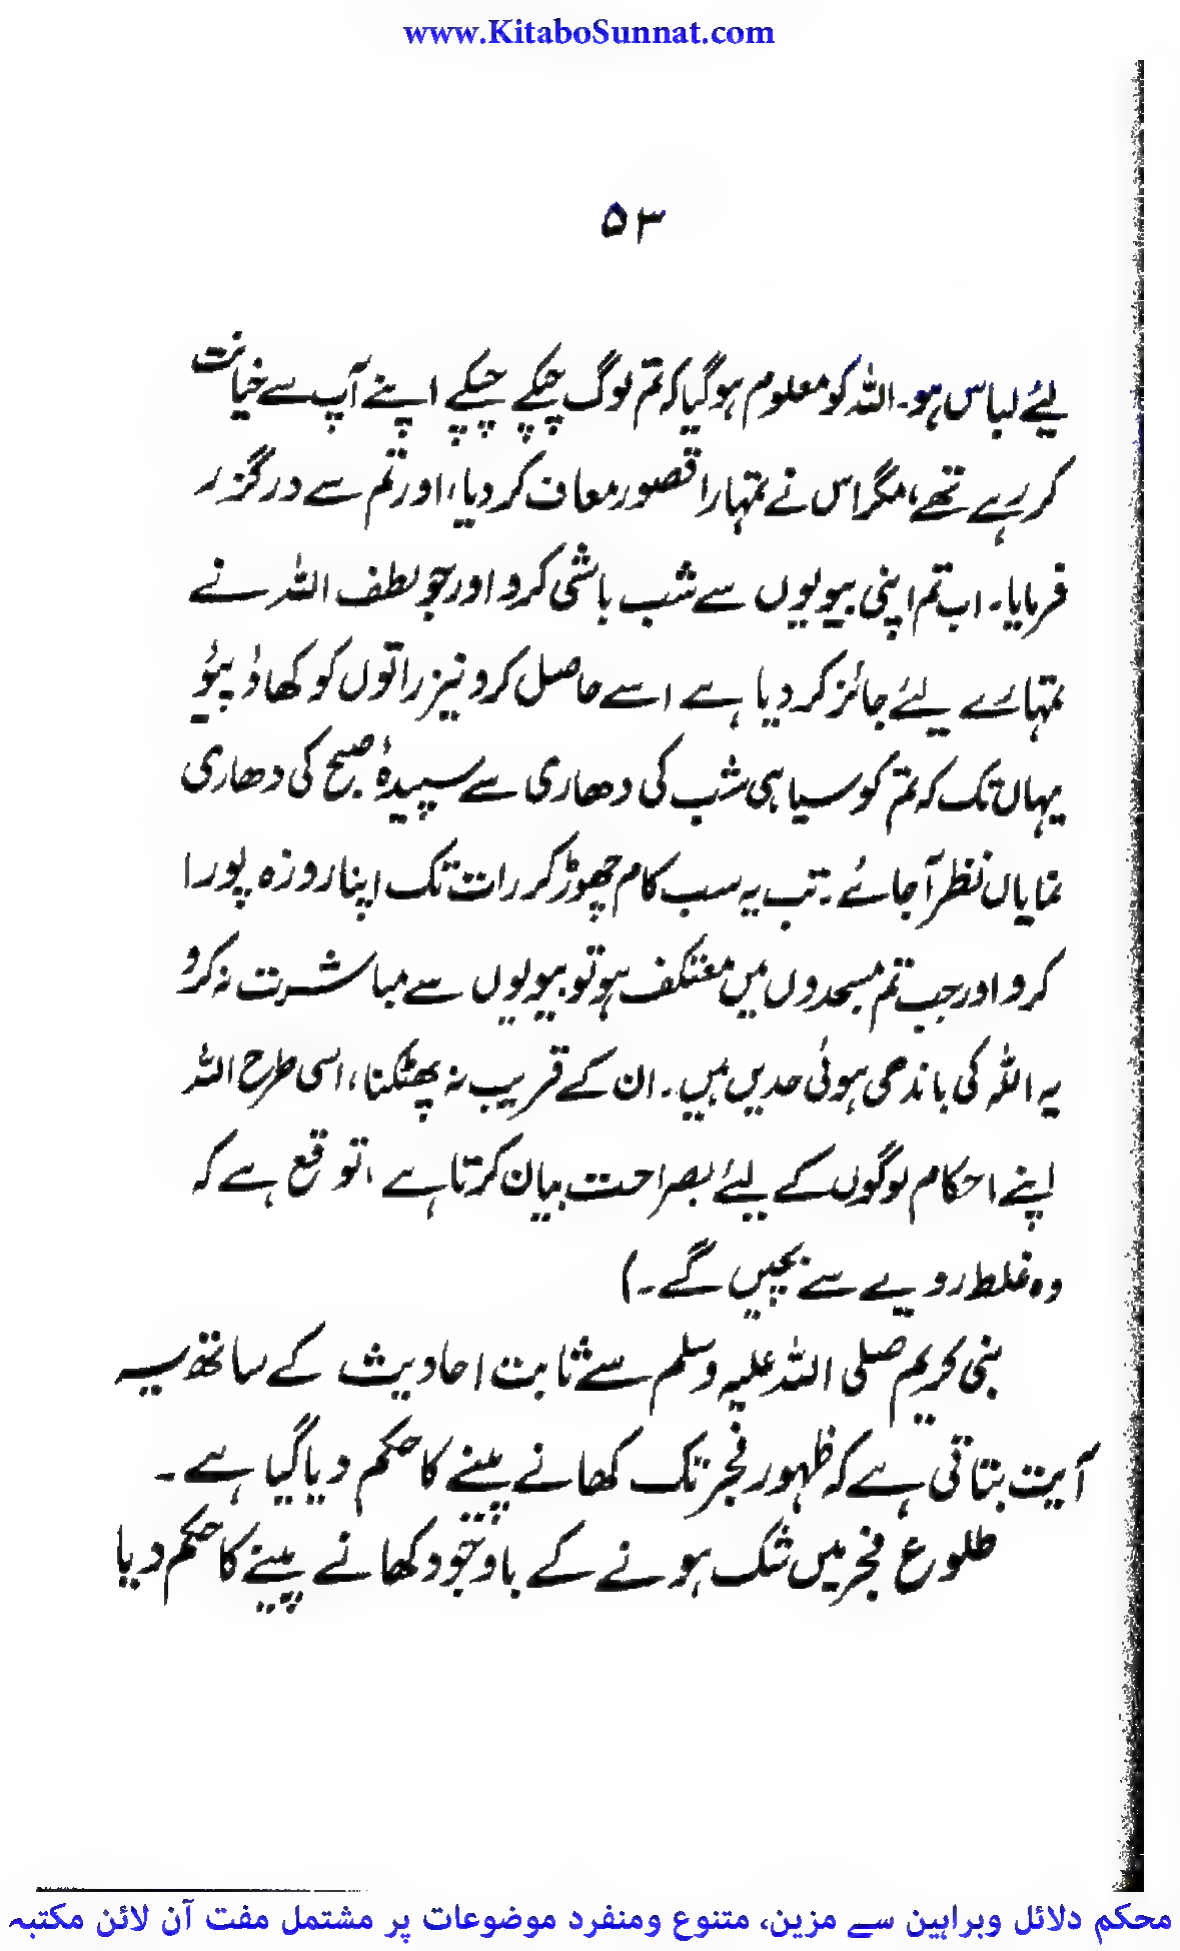 www.KitaboSunnat.com
۵۳
لئے لباس ہو۔ اللہ کو معلوم ہو گیا کہ تم لوگ چپکے چپکے اپنے آپ سے خیانت
کر رہے تھے، مگر اس نے تمہارا قصور معاف کر دیا، اور تم سے درگزر
فرمایا۔ اب تم اپنی بیویوں سے شب باشی کرو اور جو لطف اللہ نے
تمہارے لئے جائز کر دیا ہے اسے حاصل کرو نیز راتوں کو کھاؤ پیئو
یہاں تک کہ تم کو سیاہی شب کی دھاری سے سپیدۂ صبح کی دھاری
نمایاں نظر آجائے۔ تب یہ سب کام چھوڑ کر رات تک اپنا روزہ پورا
کرو اور جب تم مسجدوں میں معتکف ہو تو بیویوں سے مباشرت نہ کرو
یہ اللہ کی باندھی ہوئی حدیں ہیں۔ ان کے قریب نہ پھٹکنا، اسی طرح اللہ
اپنے احکام لوگوں کے لئے بصراحت بیان کرتا ہے، توقع ہے کہ
وہ غلط رویے سے بچیں گے۔)
نبی کریم صلی اللہ علیہ وسلم سے ثابت احادیث کے ساتھ یہ
آیت بتاتی ہے کہ ظہور فجر تک کھانے پینے کا حکم دیا گیا ہے۔
طلوع فجر میں شک ہونے کے باوجود کھانے پینے کا حکم دیا
محکم دلائل وبراہین سے مزین، متنوع ومنفرد موضوعات پر مشتمل مفت آن لائن مکتبہ